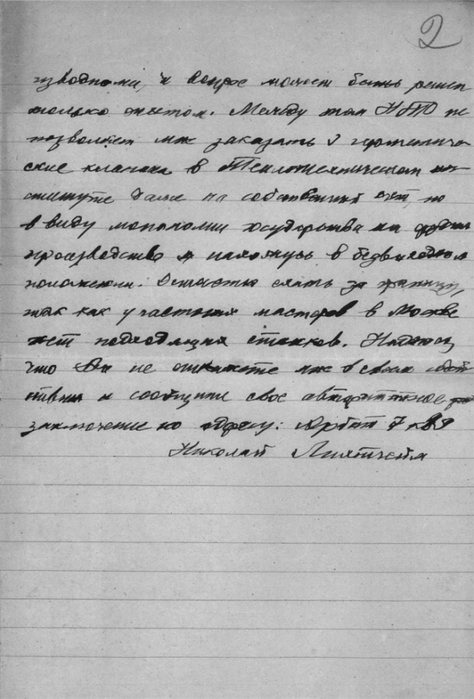 2
изводными, и вопрос может быть решен
только опытом. Между тем НТО не
позволяет мне заказать 3
ские клапана в Теплотехническом ин
ституте даже на собственный счет, но
в виду монополии государства на
производство я нахожусь в безвыходном
положении. Остается ехать за границу,
так как у частных мастеров в Москве
нет подходящих станков. Надеюсь,
что Вы не откажете мне в своем
и сообщите свое авторитетное
заключение по адресу: Арбат 7 кв
Николай